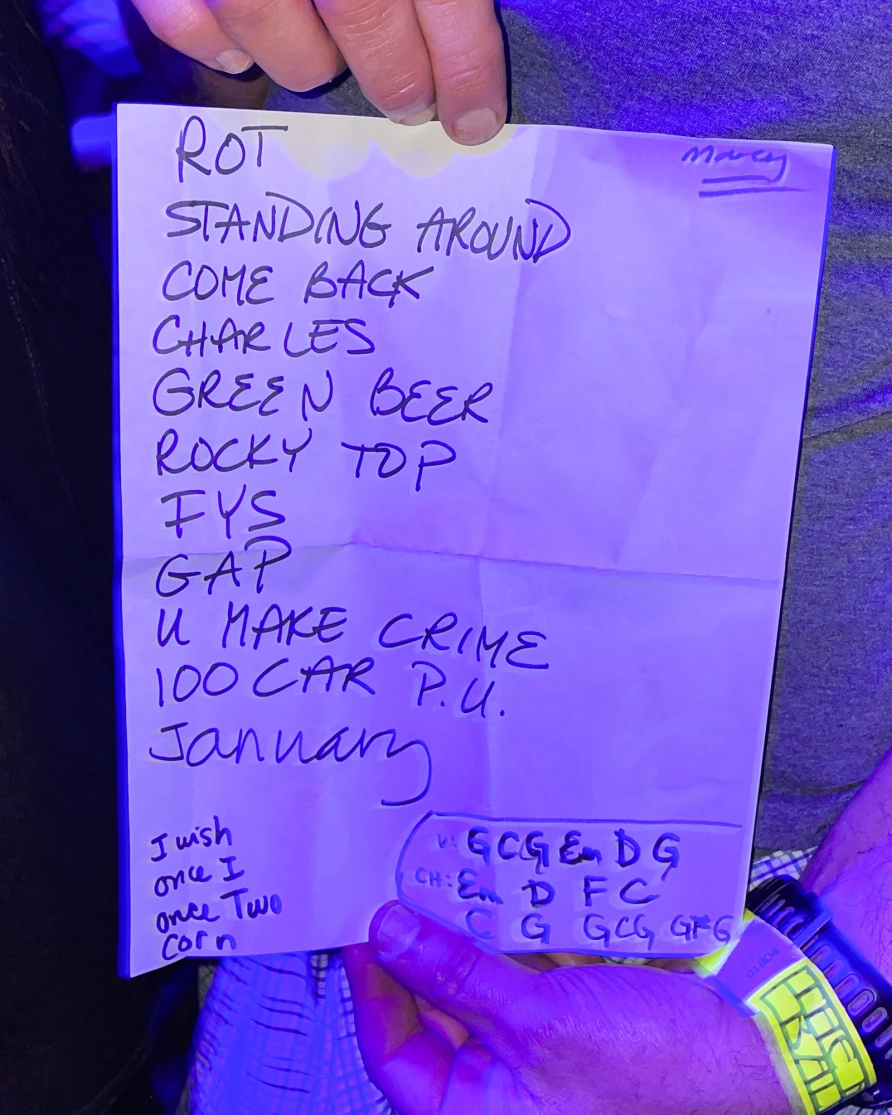 ROT
STANDING AROUND
COME BACK
CHARLES
GREEN BEER
ROCKY TOP
FYS
GAP
U MAKE CRIME
100 CAR P.U.
January
I wish
once I
once Two
corn
V: G C G Em D G
CH: Em D F C
C G GCG GFG